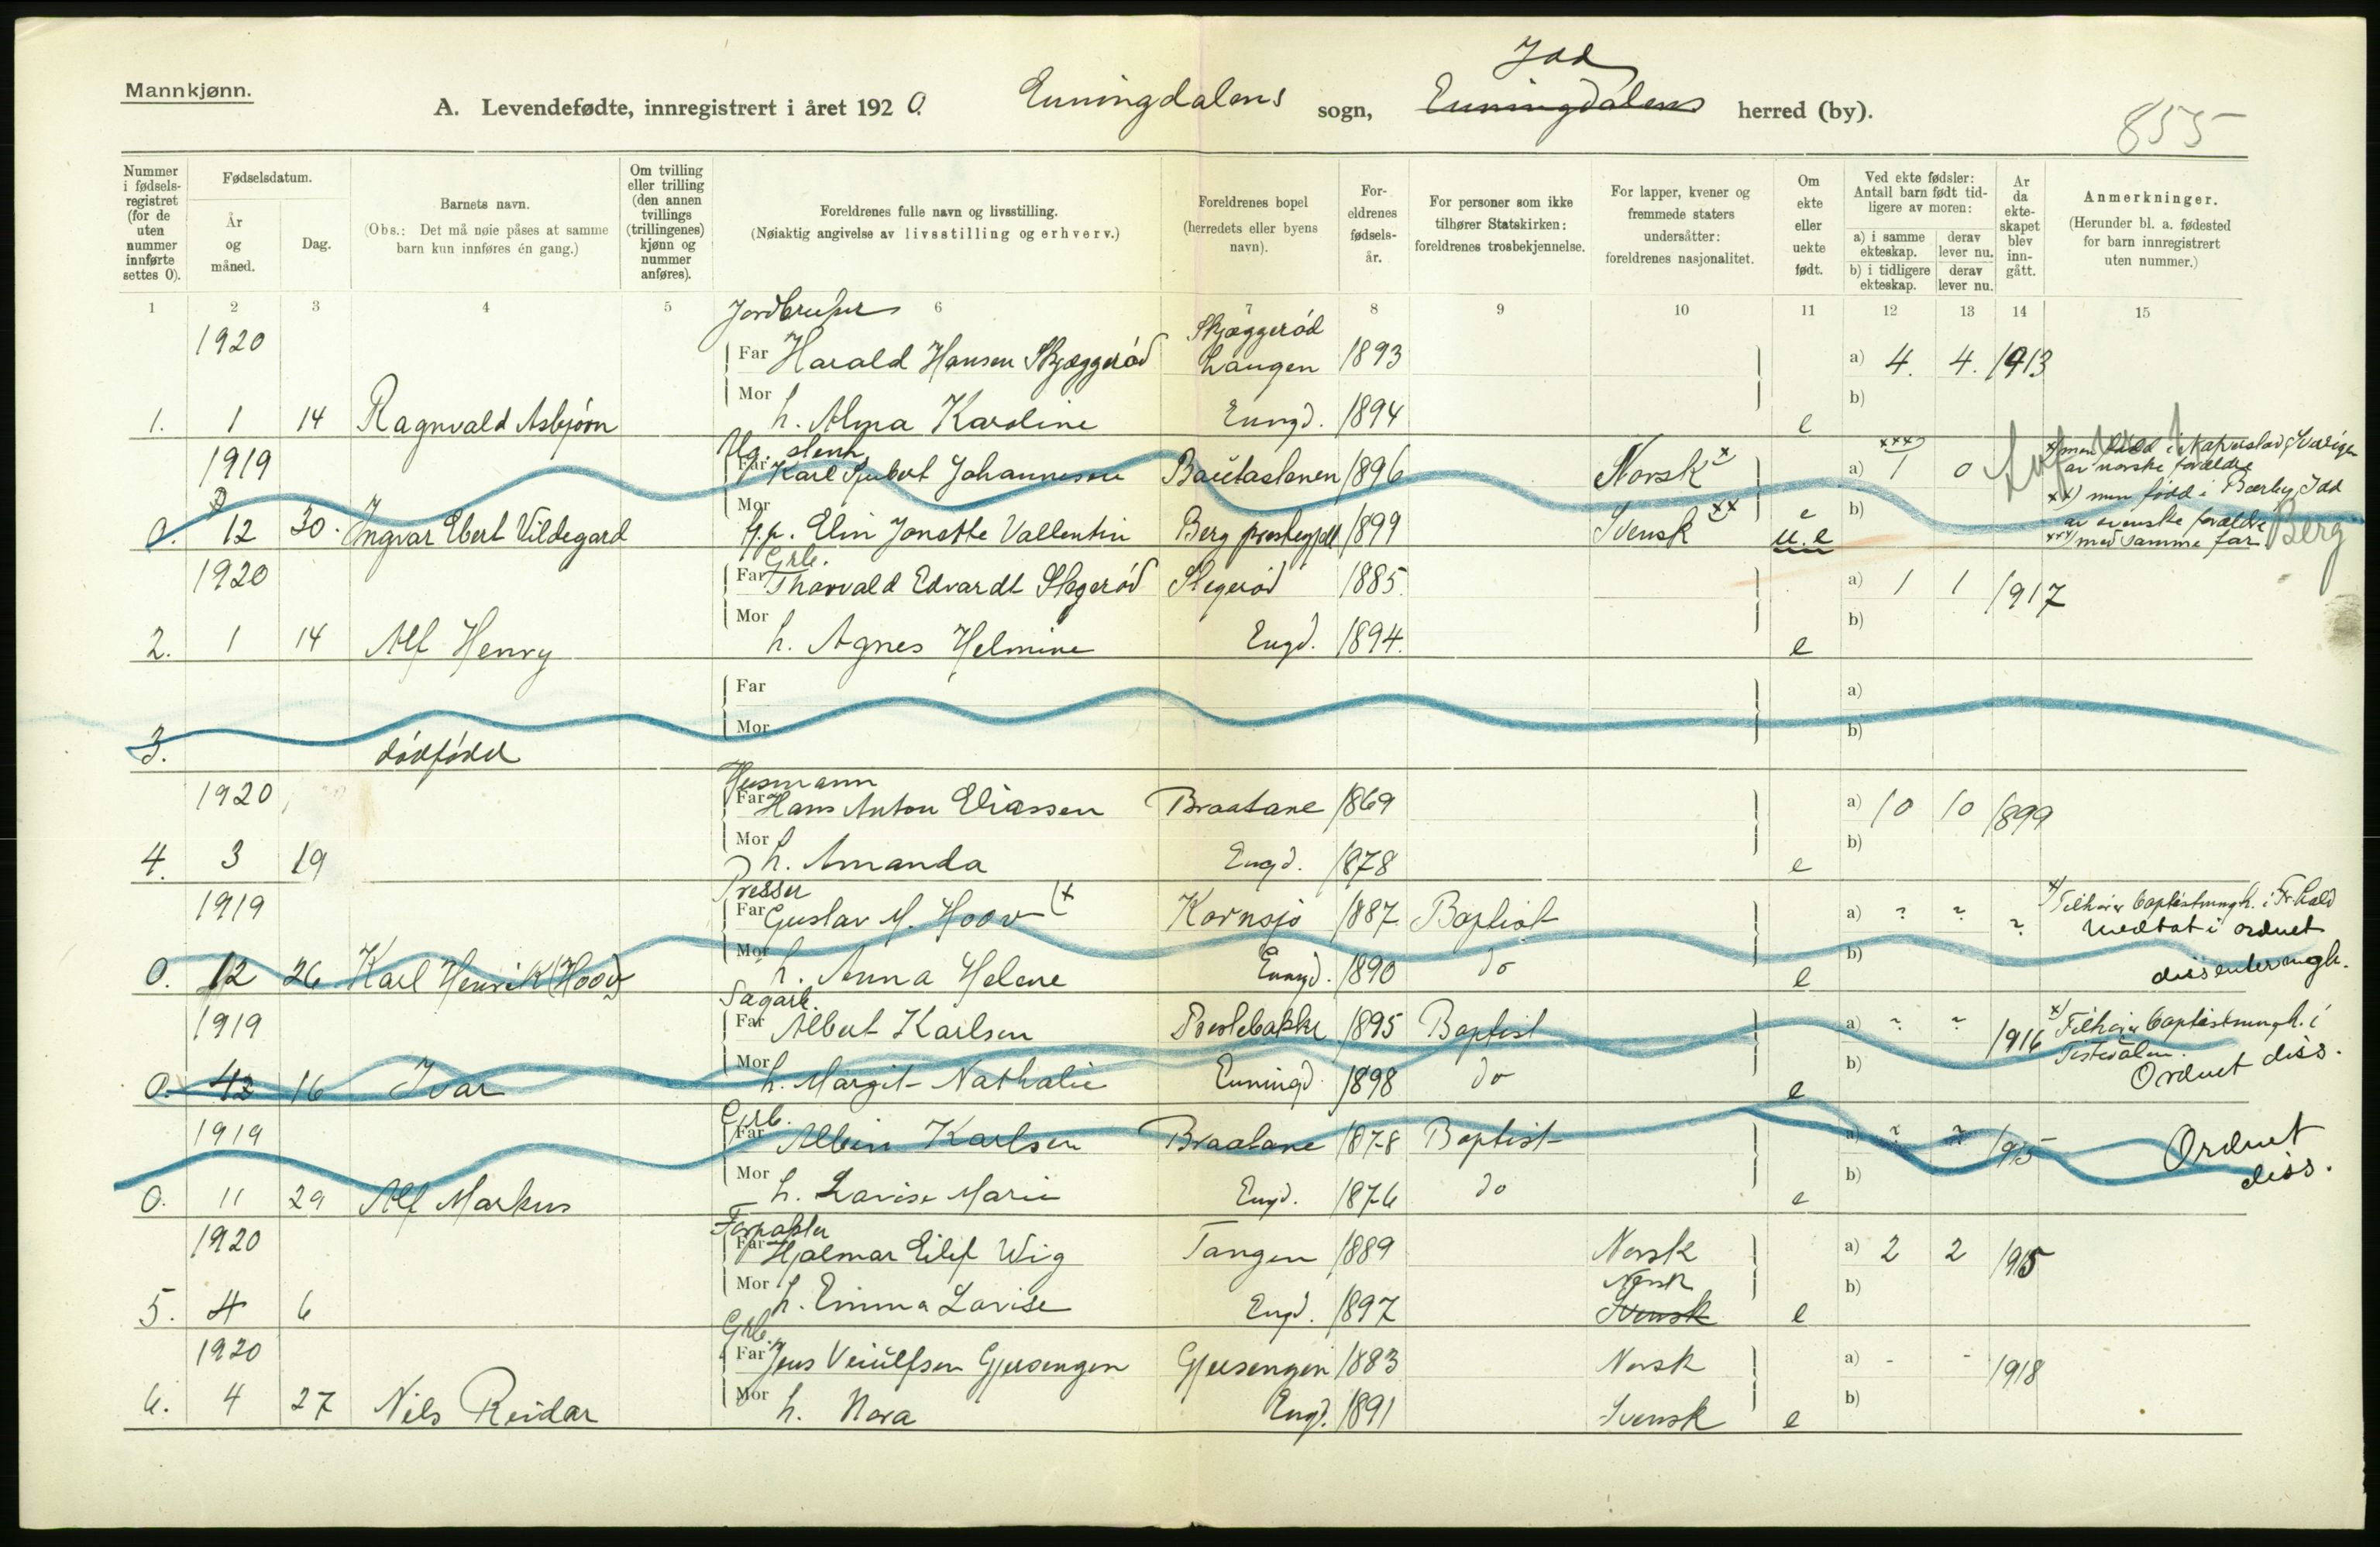 Mannkjønn.
A. Levendefødte, innregistrert i året 1920. Enningdalens sogn, Idd Enningdalens herred (by).
855
Nummer i fødselsregistret (for de uten nummer innførte settes 0).
Fødselsdatum.
År og måned.
Dag.
Barnets navn.
(Obs.: Det må nøie påses at samme barn kun innføres én gang.)
Om tvilling eller trilling (den annen tvillings (trillingenes) kjønn og nummer anføres).
Foreldrenes fulle navn og livsstilling.
(Nøiaktig angivelse av livsstilling og erhverv.)
Foreldrenes bopel (herredets eller byens navn).
Foreldrenes fødselsår.
For personer som ikke tilhører Statskirken: foreldrenes trosbekjennelse.
For lapper, kvener og fremmede staters undersåtter: foreldrenes nasjonalitet.
Om ekte eller uekte født.
Ved ekte fødsler: Antall barn født tidligere av moren:
a) i samme ekteskap. derav lever nu.
b) i tidligere ekteskap. derav lever nu.
Ar da ekteskapet blev inngått.
Anmerkninger.
(Herunder bl. a. fødested for barn innregistrert uten nummer.)
1 2 3 4 5 6 7 8 9 10 11 12 13 14 15
Jordbruker Skjæggerød
1920 Far Harald Hansen Skjæggerød Langen 1893 a) 4. 4. 1913
1. 1 14 Ragnvald Asbjørn Mor h. Alma Karoline Enngd. 1894 e b)
1919 Far Karl Hjubert Johannesen Bautastenen 1896 Norsk x a) xxx) 1 0
x) men född i Sverige
av norske forældre
0. 12 30. Ingvar Ebert Vildegard Mor Elin Jonette Vallentin Berg prestegjeld 1899 Svensk xx e u.e b)
xx) men född i Berby, Idd
av svenske forældre
xxx) med samme far.
Berg
Grb.
1920 Far Thorvald Edvardt Slegerød Slegerød 1885. a) 1 1 1917
2. 1 14 Alf Henry Mor h. Agnes Helmine Engd. 1894. e b)
Far a)
3. dødfødd Mor b)
Husmann
1920 Far Hans Anton Eliassen Braatane 1869 a) 10 10 1899
4. 3 19 Mor h. Amanda Engd. 1878 e b)
Presser
1919 Far Gustav M. Hoov (x Kornsjø 1887 Baptist a) ? ? ?
x) Tilhører baptistmenigh. i Fr.hald
Medtat i ordnet
dissentermgh.
0. 12 26 Karl Henrik (Hoov) Mor h. Anna Helene Enngd. 1890 do e b)
Sagarb.
1919 Far Albert Karlsen Prestebakke 1895 Baptist a) ? ? 1916
x) Tilhører baptistmenigh. i
Tistedalen.
Ordnet diss.
0. 12 16 Ivar Mor h. Margit Nathalie Enningd. 1898 do e b)
Grb.
1919 Far Albin Karlsen Braatane 1878 Baptist a) ? ? 1915
Ordnet
diss.
0. 11 29 Alf Markus Mor h. Lovise Marie Engd. 1876 do e b)
Forpakter
1920 Far Hjalmar Eilif Wig Tangen 1889 Norsk a) 2 2 1915
Norsk
5. 4 6 Mor h. Emma Lovise Engd. 1897 Svensk e b)
Grb.
1920 Far Jens Veiulfsen Gjeesengen Gjeesengen 1883 Norsk a) - - 1918
6. 4 27 Nils Reidar Mor h. Nora Engd. 1891 Svensk e b)